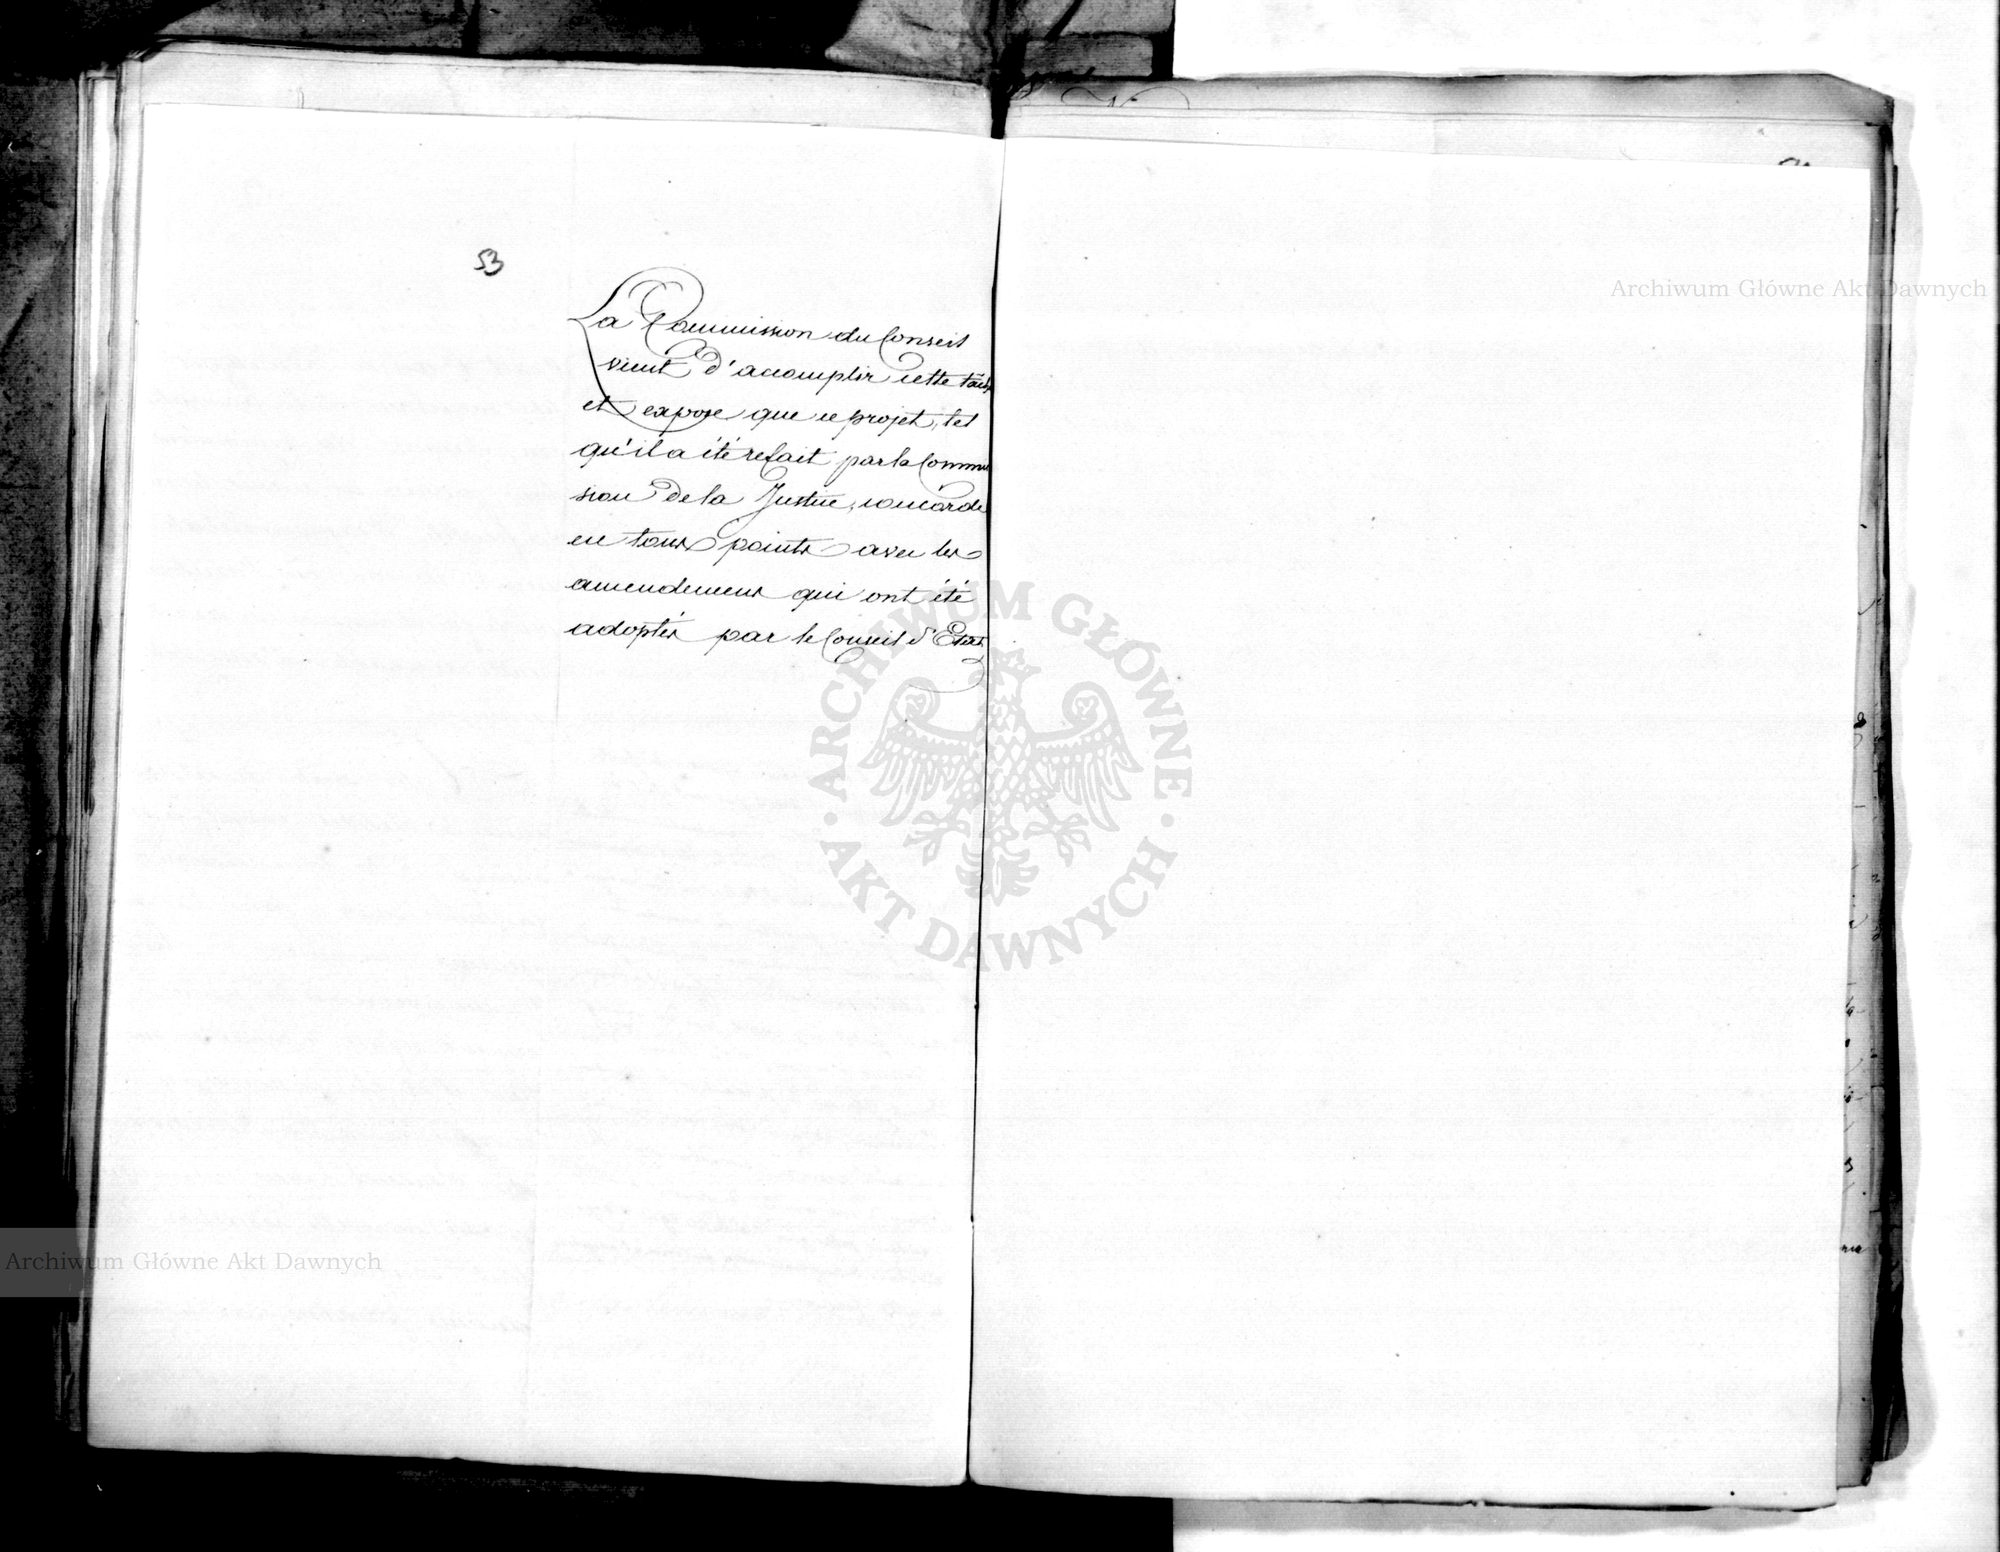 53
La Commission du Conseil
vient d'accomplir cette tâche
et expose que ce projet, tel
qu'il a été refait par la Commis
sion de la Justice, concorde
en tous points avec les
amendemens qui ont été
adoptés par le Conseil d'Etat
Archiwum Główne Akt Dawnych
ARCHIWUM GŁÓWNE
AKT DAWNYCH
Archiwum Główne Akt Dawnych